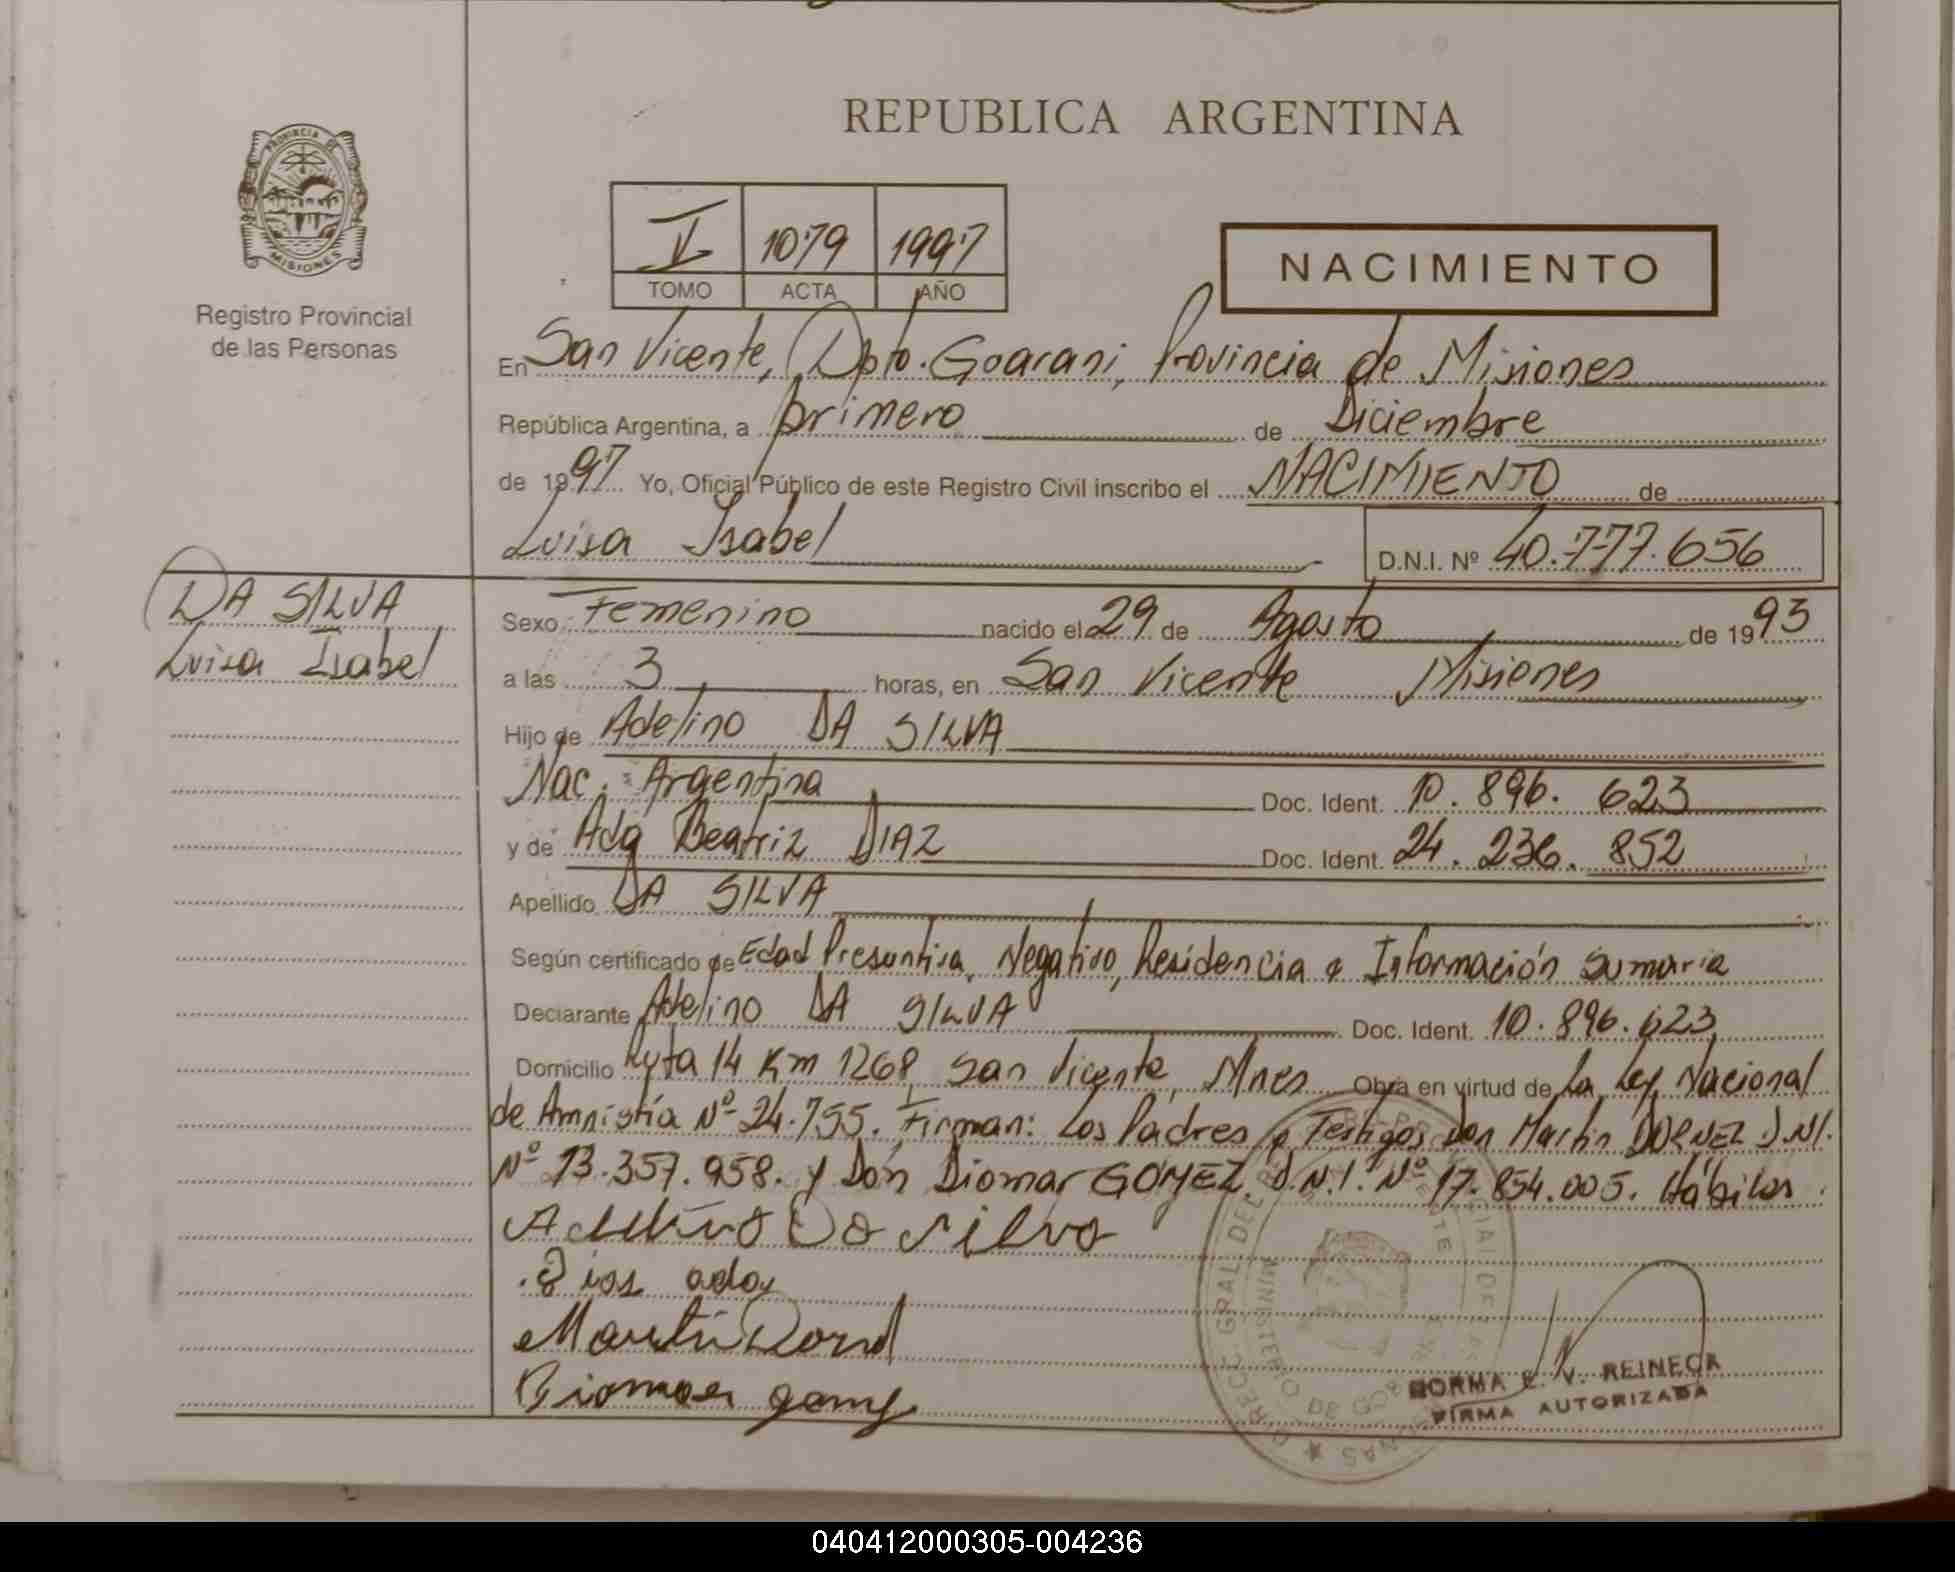 REPUBLICA ARGENTINA
PROVINCIA DE
MISIONES
Registro Provincial
de las Personas
V 1079 1997
TOMO ACTA AÑO
NACIMIENTO
En San Vicente, Dpto. Guarani, Provincia de Misiones
República Argentina, a primero de Diciembre
de 1997 Yo, Oficial Público de este Registro Civil inscribo el NACIMIENTO de
Luisa Isabel D.N.I. Nº 40.777.656
DA SILVA
Luisa Isabel
Sexo Femenino nacido el 29 de Agosto de 1993
a las 3 horas, en San Vicente Misiones
Hijo de Adelino DA SILVA
Nac. Argentina Doc. Ident. 10.896.623
y de Ada Beatriz DIAZ Doc. Ident. 24.236.852
Apellido DA SILVA
Según certificado de Edad Presuntiva, Negativo, Residencia e Información Sumaria
Declarante Adelino DA SILVA Doc. Ident. 10.896.623
Domicilio Ruta 14 Km 1268, San Vicente, Mnes Obra en virtud de La Ley Nacional
de Amnistía Nº 24.755. Firman: Los Padres, e Testigos Don Martin DORNEL D.N.I.
Nº 13.357.958. y Don Diomar GOMEZ D.N.I. Nº 17.854.005. Hábiles.
Adelino Da Silva
Dias ada
Martin Dornel
Diomar gomez
NORMA E. V. REINECK
FIRMA AUTORIZADA
040412000305-004236